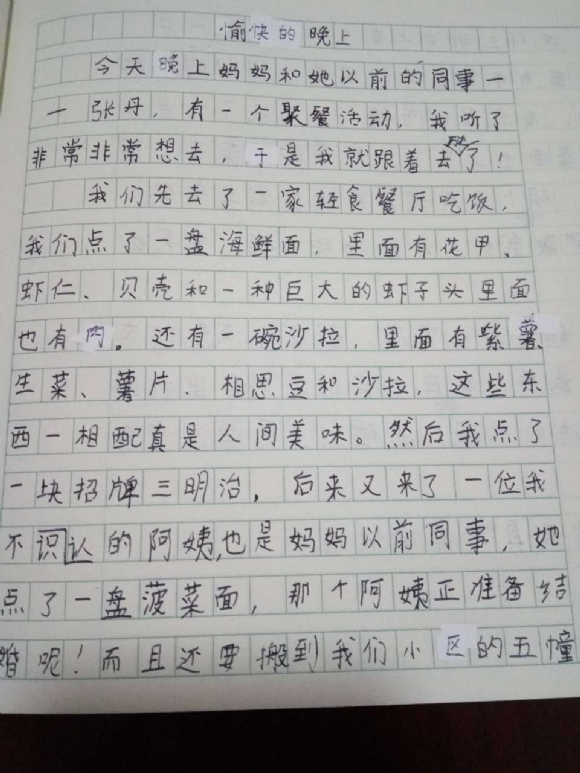 愉快的晚上
今天晚上妈妈和她以前的同事一
一张丹，有一个聚餐活动，我听了
非常非常想去，于是我就跟着去了！
我们先去了一家轻食餐厅吃饭，
我们点了一盘海鲜面，里面有花甲、
虾仁、贝壳和一种巨大的虾子头里面
也有肉。还有一碗沙拉，里面有紫薯、
生菜、薯片、相思豆和沙拉，这些东
西一相配真是人间美味。然后我点了
一块招牌三明治，后来又来了一位我
不识认的阿姨，也是妈妈以前同事，她
点了一盘菠菜面，那个阿姨正准备结
婚呢！而且还要搬到我们小区的五幢